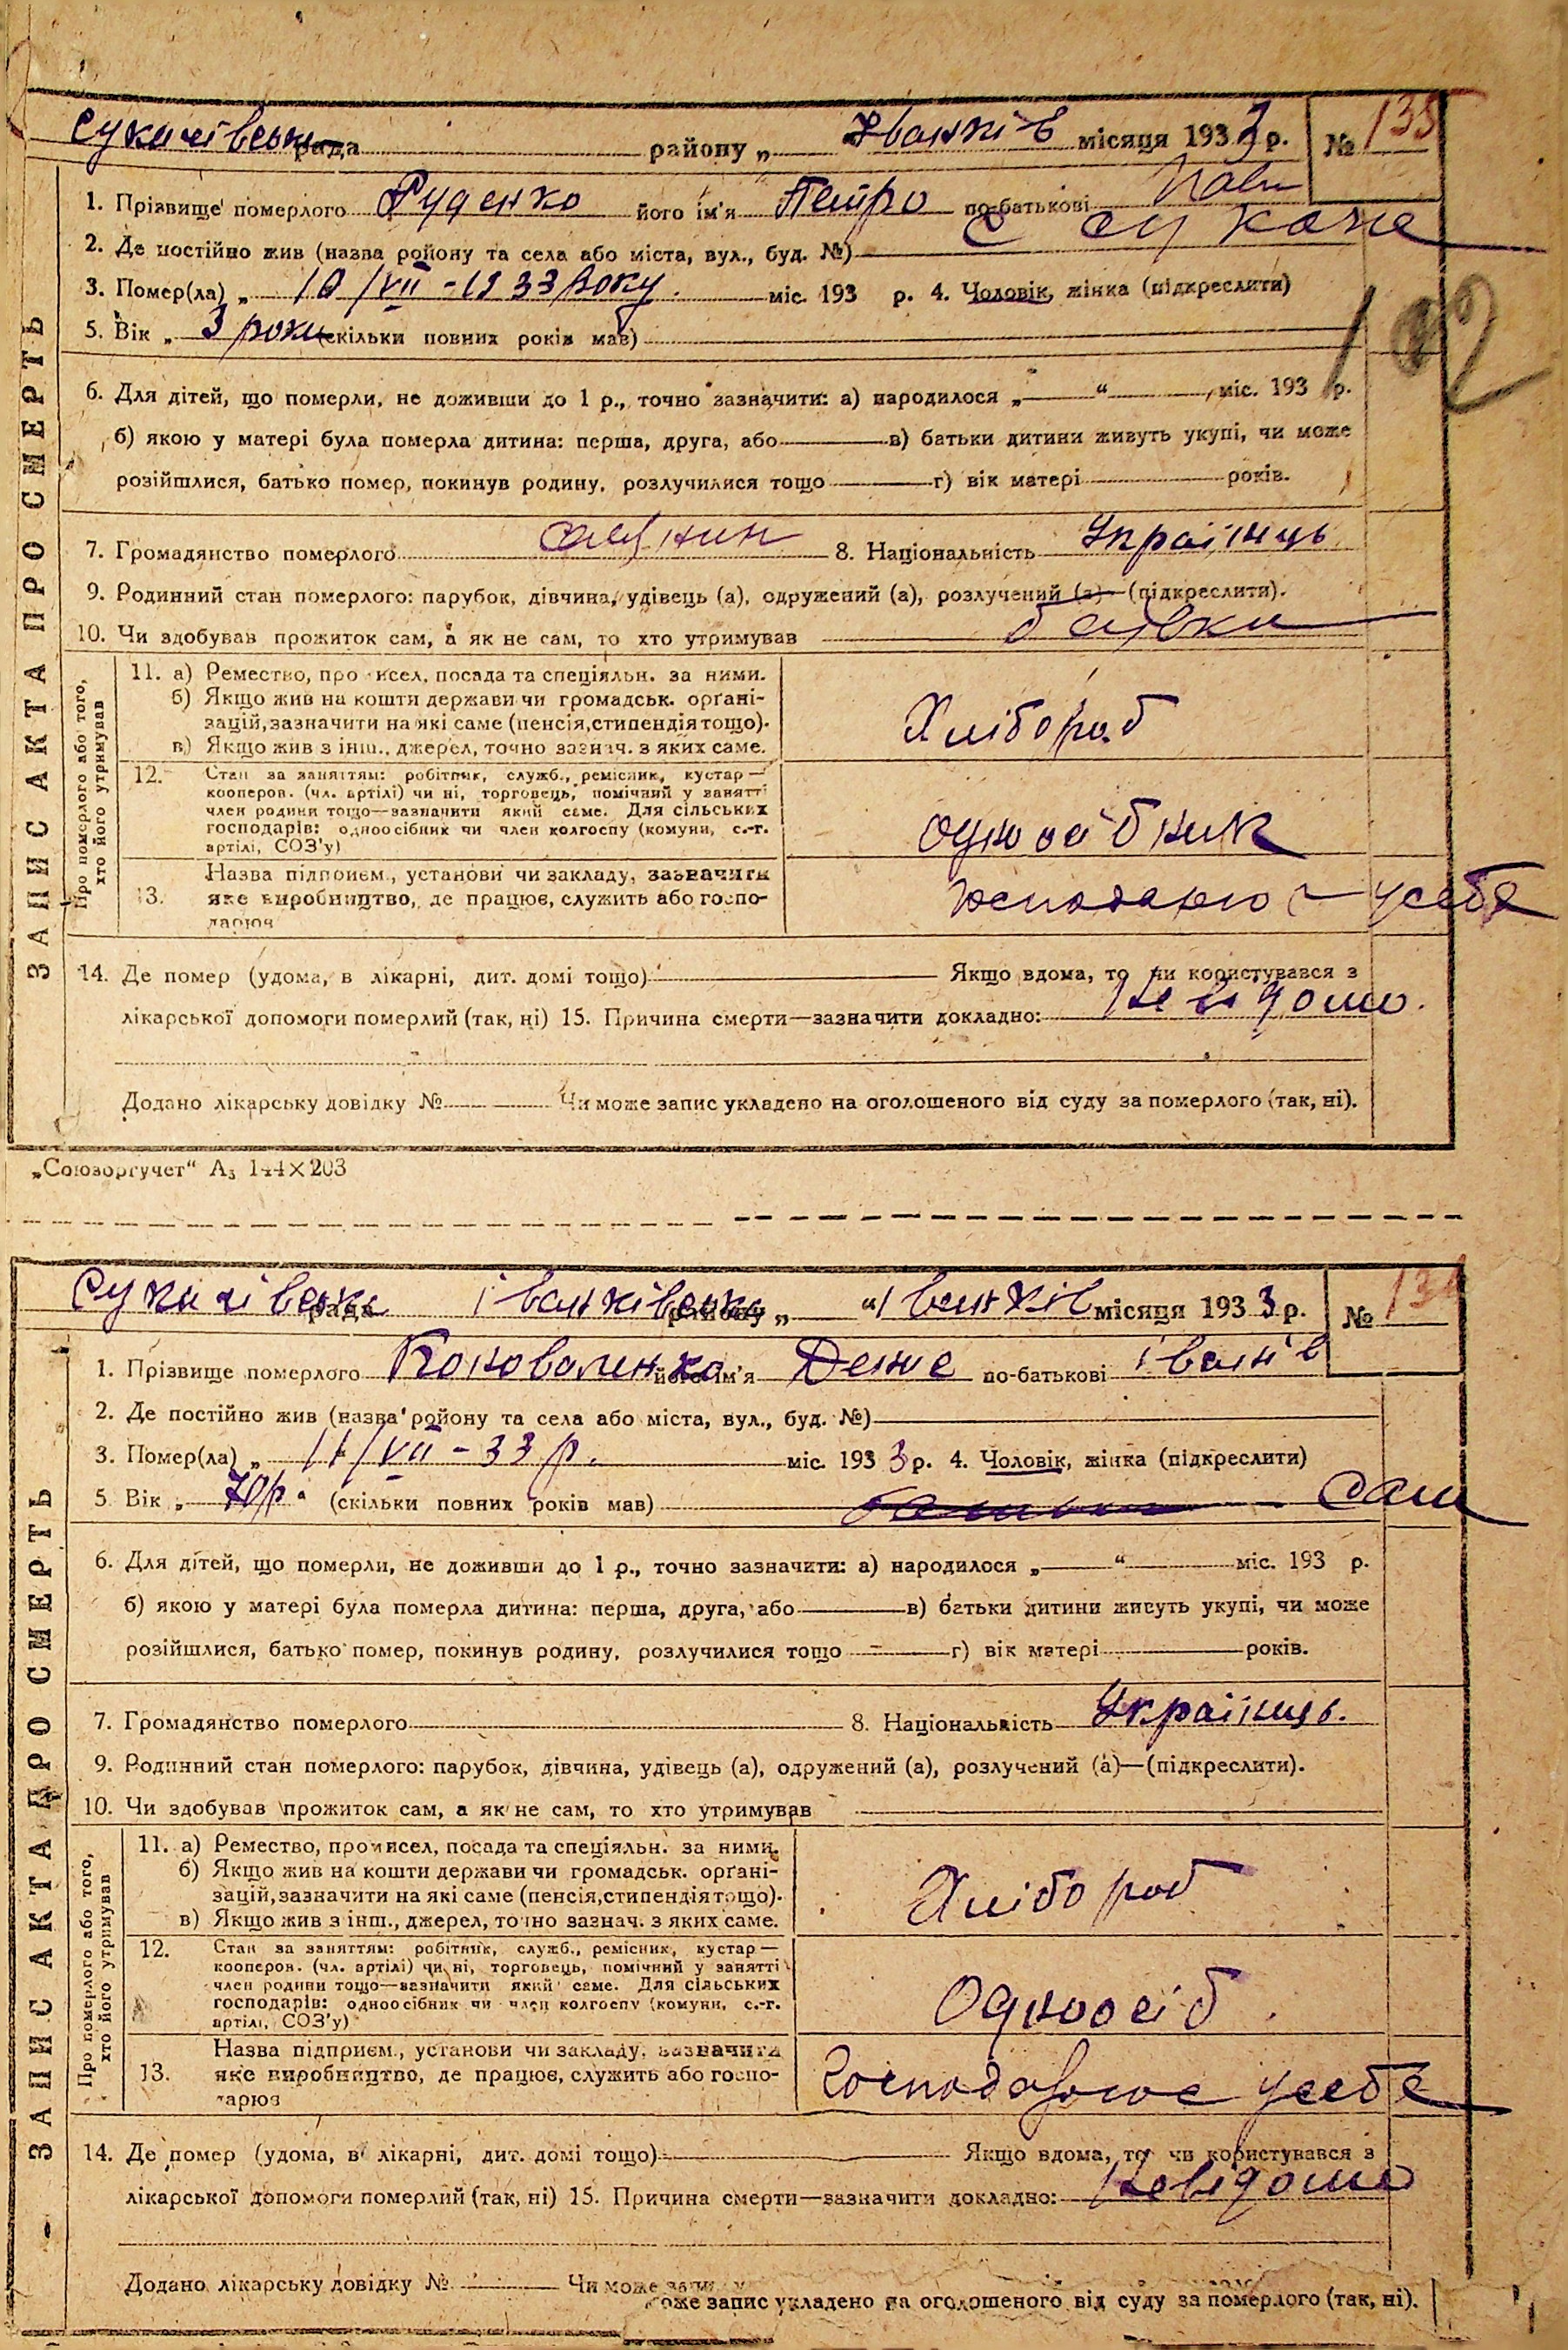 Сукачівська рада району „ Іванків місяця 1933 р. № 135
1. Прізвище померлого Руденко його ім'я Петро по-батькові
2. Де постійно жив (назва ройону та села або міста, вул., буд. №) с Сукачі
3. Помер(ла) „ 10/VII - 1933 року. міс. 193 р. 4. Чоловік, жінка (підкреслити)
5. Вік „ 3 роки (скільки повних років мав)
192
6. Для дітей, що померли, не доживши до 1 р., точно зазначити: а) народилося „ “ міс. 193 р.
б) якою у матері була померла дитина: перша, друга, або в) батьки дитини живуть укупі, чи може
розійшлися, батько помер, покинув родину, розлучилися тощо г) вік матері років.
7. Громадянство померлого 8. Національність Українць
9. Родинний стан померлого: парубок, дівчина, удівець (а), одружений (а), розлучений (а)—(підкреслити).
10. Чи здобував прожиток сам, а як не сам, то хто утримував батьки
ЗАПИС АКТА ПРО СМЕРТЬ
Про померлого або того,
хто його утримував
11. а) Ремество, про исел, посада та спеціяльн. за ними.
б) Якщо жив на кошти держави чи громадськ. орґані-
зацій, зазначити на які саме (пенсія, стипендія тощо).
в) Якщо жив з інш., джерел, точно зазнач. з яких саме.
Хлібороб
12. Стан за заняттям: робітник, служб., ремісник, кустар—
кооперов. (чл. артілі) чи ні, торговець, помічний у занятті
член родини тощо—зазначити який саме. Для сільських
господарів: одноосібник чи член колгоспу (комуни, с.-г.
артілі, СОЗ'у)
одноосібник
Назва підприєм., установи чи закладу, зазначити
13. яке виробництво, де працює, служить або госпо-
дарює
усебе
14. Де помер (удома, в лікарні, дит. домі тощо) Якщо вдома, то чи користувався з
лікарської допомоги померлий (так, ні) 15. Причина смерти—зазначити докладно: Невідомо.
Додано лікарську довідку № Чи може запис укладено на оголошеного від суду за померлого (так, ні).
„Союзоргучет“ А₃ 144×203
Сукачівська рада Іванківська району „ “ Іванків місяця 1933 р. №
1. Прізвище померлого Коноваленко його ім'я по-батькові Іванів
2. Де постійно жив (назва ройону та села або міста, вул., буд. №)
3. Помер(ла) „ 11/VII - 33 р. міс. 1933 р. 4. Чоловік, жінка (підкреслити)
5. Вік „ 70 р. (скільки повних років мав) Сам
6. Для дітей, що померли, не доживши до 1 р., точно зазначити: а) народилося „ “ міс. 193 р.
б) якою у матері була померла дитина: перша, друга, або в) батьки дитини живуть укупі, чи може
розійшлися, батько помер, покинув родину, розлучилися тощо г) вік матері років.
7. Громадянство померлого 8. Національність Українць.
9. Родинний стан померлого: парубок, дівчина, удівець (а), одружений (а), розлучений (а)—(підкреслити).
10. Чи здобував прожиток сам, а як не сам, то хто утримував
ЗАПИС АКТА ПРО СМЕРТЬ
Про померлого або того,
хто його утримував
11. а) Ремество, промисел, посада та спеціяльн. за ними.
б) Якщо жив на кошти держави чи громадськ. орґані-
зацій, зазначити на які саме (пенсія, стипендія тощо).
в) Якщо жив з інш., джерел, точно зазнач. з яких саме.
Хлібороб
12. Стан за заняттям: робітник, служб., ремісник, кустар—
кооперов. (чл. артілі) чи ні, торговець, помічний у занятті
член родини тощо—зазначити який саме. Для сільських
господарів: одноосібник чи член колгоспу (комуни, с.-г.
артілі, СОЗ'у)
Одноосіб.
Назва підприєм., установи чи закладу, зазначити
13. яке виробництво, де працює, служить або госпо-
дарює
Господарює усебе
14. Де помер (удома, в лікарні, дит. домі тощо) Якщо вдома, то чи користувався з
лікарської допомоги померлий (так, ні) 15. Причина смерти—зазначити докладно: Невідомо
Додано лікарську довідку № Чи може запис у
оже запис укладено на оголошеного від суду за померлого (так, ні).